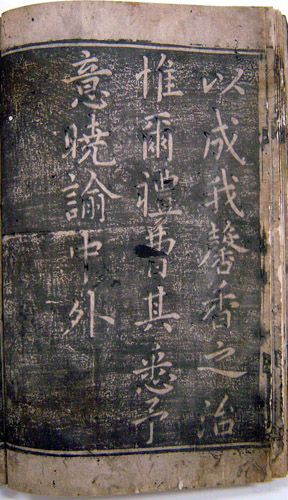 以成我馨香之治
惟爾禮曹其悉予
意曉諭中外